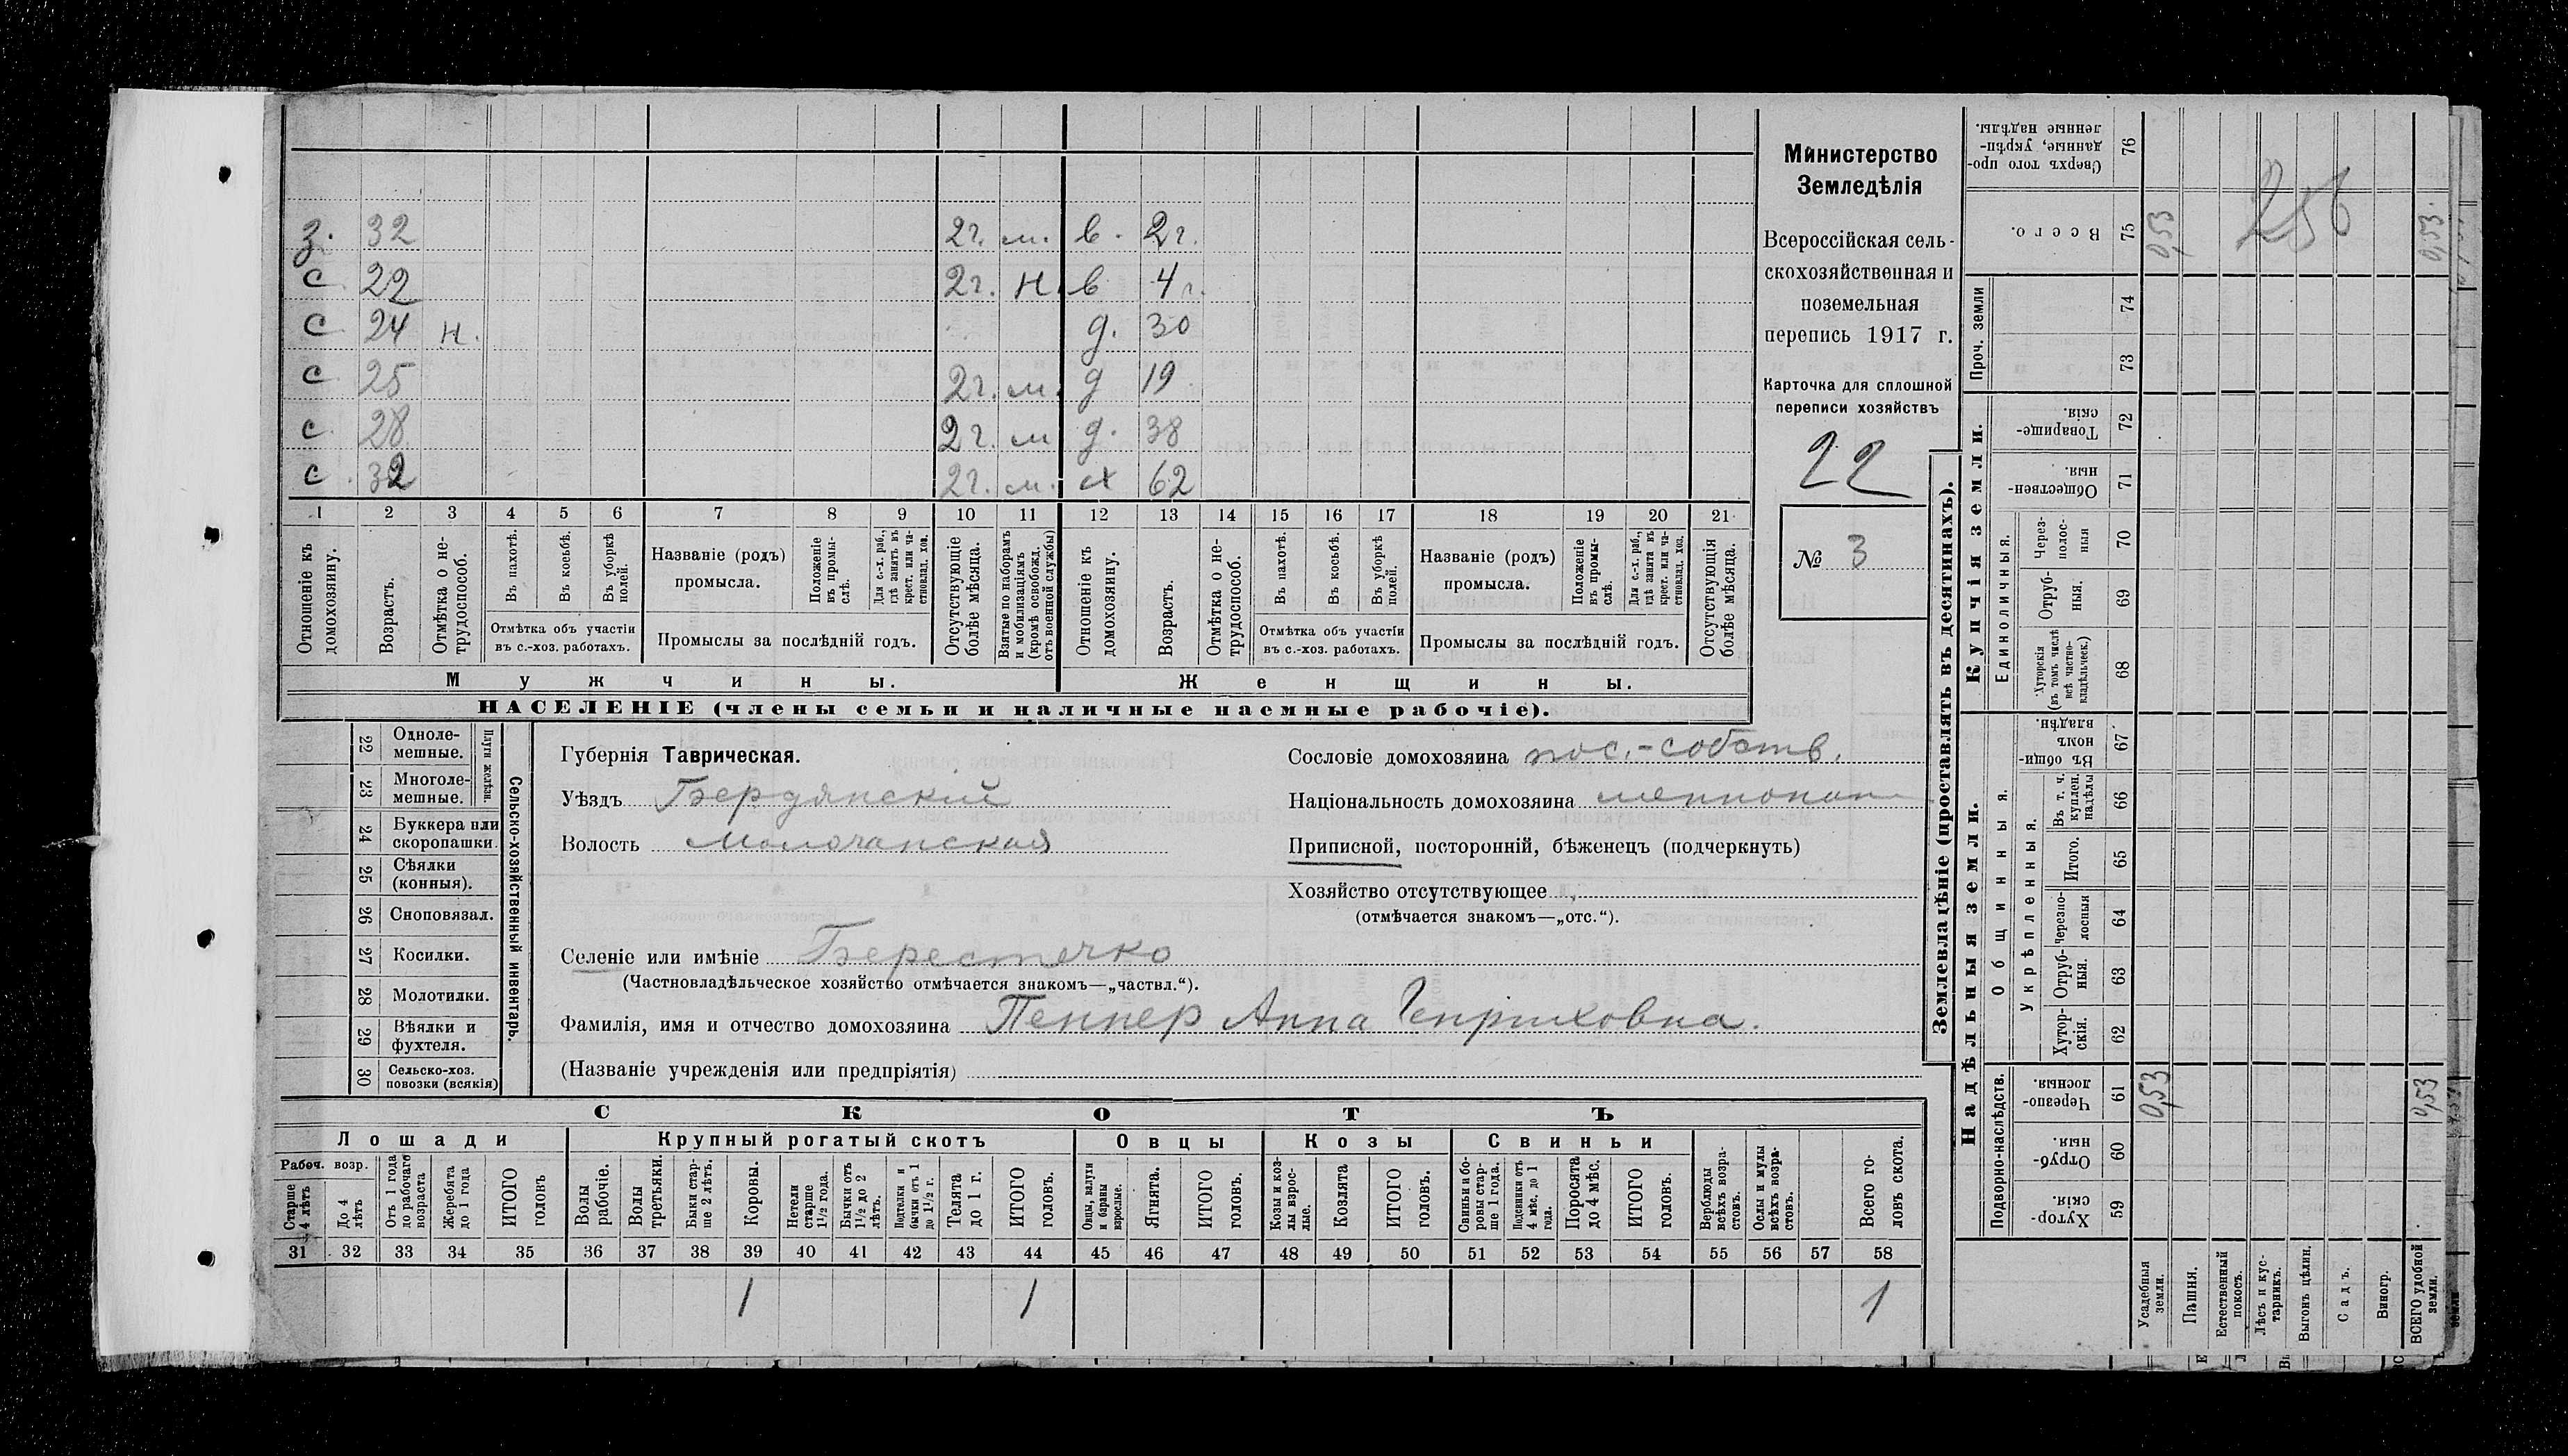 Министерство
Земледѣлія
Всероссійская сель-
скохозяйственная и
поземельная
перепись 1917 г.
Карточка для сплошной
переписи хозяйствъ
22
№ 3
з. 32 2г. м. в. 2г.
с 22 2г. н. в 4г.
с 24 н. д. 30
с 25 2г. м. д 19
с. 28 2г. м д. 38
с. 32 2г. м. х 62
1 2 3 4 5 6 7 8 9 10 11 12 13 14 15 16 17 18 19 20 21
Отношеніе къ домохозяину.
Возрастъ.
Отмѣтка о не-трудоспособ.
Въ пахотѣ.
Въ косьбѣ.
Въ уборкѣ полей.
Отмѣтка объ участіи въ с.-хоз. работахъ.
Названіе (родъ) промысла.
Положеніе въ промы-слѣ.
Для с.-х. раб., гдѣ занятъ въ крест. или ча-стновлад. хоз.
Промыслы за послѣдній годъ.
Отсутствующіе болѣе мѣсяца.
Взятые по наборамъ и мобилизаціямъ (кромѣ освобожд. отъ военной службы)
Отношеніе къ домохозяину.
Возрастъ.
Отмѣтка о не-трудоспособ.
Въ пахотѣ.
Въ косьбѣ.
Въ уборкѣ полей.
Отмѣтка объ участіи въ с.-хоз. работахъ.
Названіе (родъ) промысла.
Положеніе въ промы-слѣ.
Для с.-х. раб., гдѣ занята въ крест. или ча-стновлад. хоз.
Промыслы за послѣдній годъ.
Отсутствующія болѣе мѣсяца.
Мужчины. Женщины.
НАСЕЛЕНІЕ (члены семьи и наличные наемные рабочіе).
Сельско-хозяйственный инвентарь.
Плуги желѣзн.
22 Одноле-мешные.
23 Многоле-мешные.
24 Буккера или скоропашки.
25 Сѣялки (конныя).
26 Сноповязал.
27 Косилки.
28 Молотилки.
29 Вѣялки и фухтеля.
30 Сельско-хоз. повозки (всякія)
Губернія Таврическая.
Уѣздъ Бердянскій
Волость Молочанская
Селеніе или имѣніе Берестечко
(Частновладѣльческое хозяйство отмѣчается знакомъ—„частвл.“).
Фамилія, имя и отчество домохозяина Пеннер Анна Генриховна.
(Названіе учрежденія или предпріятія)
Сословіе домохозяина пос.-собств.
Національность домохозяина меннонит
Приписной, посторонній, бѣженецъ (подчеркнуть)
Хозяйство отсутствующее
(отмѣчается знакомъ—„отс.“).
СКОТЪ
Лошади Крупный рогатый скотъ Овцы Козы Свиньи
Рабоч. возр.
Старше 4 лѣтъ
До 4 лѣтъ
Отъ 1 года до рабочаго возраста
Жеребята до 1 года
ИТОГО головъ
Волы рабочіе.
Волы третьяки.
Быки стар-ше 2 лѣтъ.
Коровы.
Нетели старше 1½ года.
Бычки отъ 1½ до 2 лѣтъ.
Подтелки и бычки отъ 1 до 1½ г.
Телята до 1 г.
ИТОГО головъ.
Овцы, валухи и бараны взрослые.
Ягнята.
ИТОГО головъ.
Козы и коз-лы взрос-лые.
Козлята
ИТОГО головъ.
Свиньи и бо-ровы стар-ше 1 года.
Подсвинки отъ 4 мѣс. до 1 года.
Поросята до 4 мѣс.
ИТОГО головъ.
Верблюды всѣхъ возра-стовъ.
Ослы и мулы всѣхъ возра-стовъ.
Всего го-ловъ скота.
31 32 33 34 35 36 37 38 39 40 41 42 43 44 45 46 47 48 49 50 51 52 53 54 55 56 57 58
1 1 1
Землевладѣніе (проставлять въ десятинахъ).
Надѣльныя земли. Купчія земли. Проч. земли
Подворно-наслѣдств.
Общинныя.
Укрѣпленныя.
Единоличныя.
59 Хутор-скія.
60 Отруб-ныя.
61 Черезпо-лосныя. 0,53 0,53
62 Хутор-скія.
63 Отруб-ныя.
64 Черезпо-лосныя
65 Итого.
66 Въ т. ч. куплен. надѣлы
67 Въ общин-номъ владѣн.
68 Хуторскія (въ томъ числѣ всѣ частно-владѣльческ.)
69 Отруб-ныя.
70 Через-полос-ныя
71 Обществен-ныя.
72 Товарище-скія.
73
74
75 Всего. 0,53 0,53.
76 Сверхъ того про-данные, укрѣп-ленные надѣлы.
256
Усадебныя земли.
Пашня.
Естественный покосъ.
Лѣсъ и кус-тарникъ.
Выгонъ цѣлин.
Садъ.
Виногр.
ВСЕГО удобной земли.